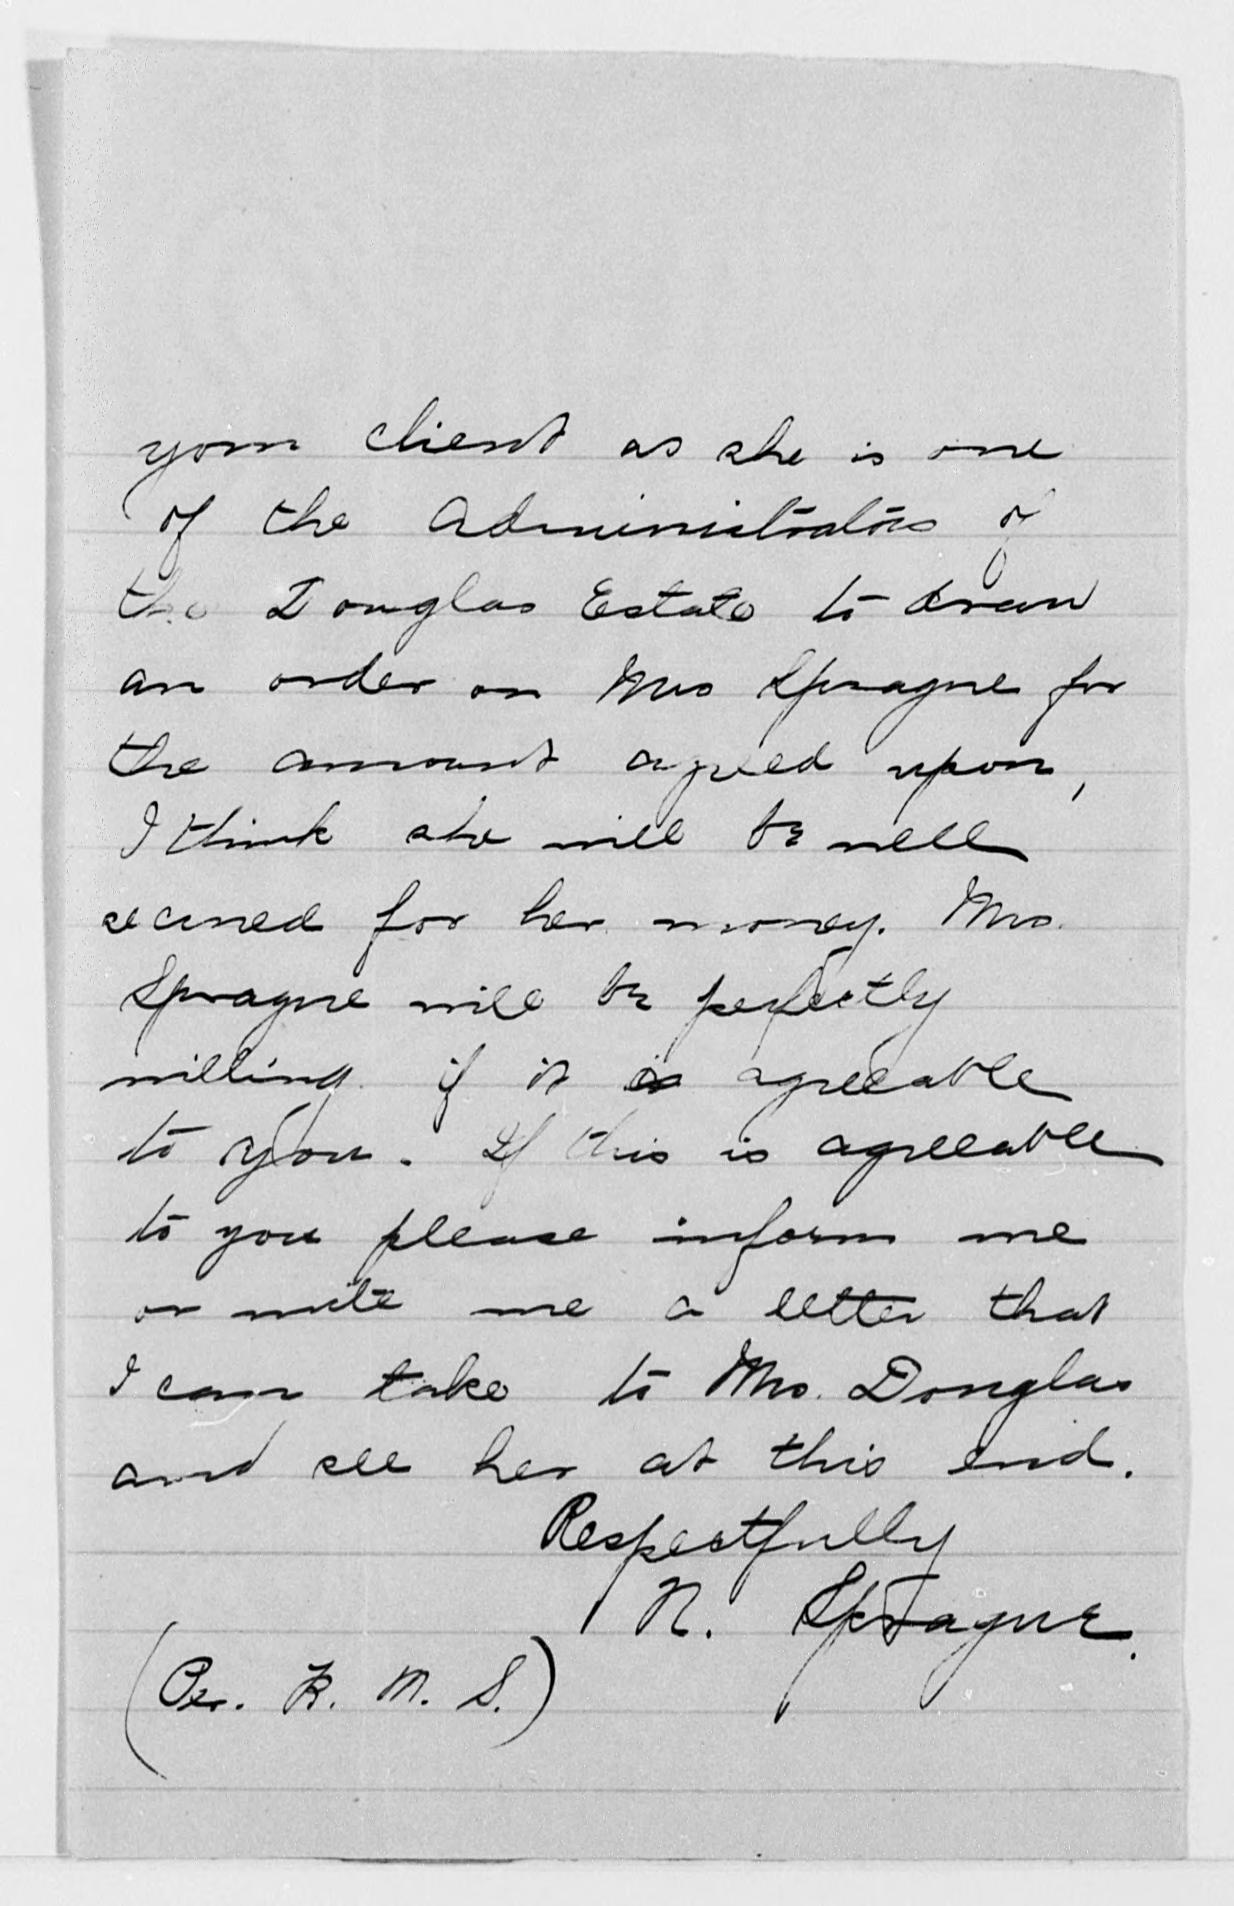 your client as she is one
of the Administrators of
the Douglas Estate to draw
an order on Mrs Sprague for
the amount agreed upon,
I think she will be well
secured for her money. Mrs.
Sprague will be perfectly
willing if it is agreeable
to you. If this is agreeable
to you please inform me
or write me a letter that
I can take to Mrs. Douglas
and see her at this end.
Respectfully
N. Sprague.
(Per. F. M. S.)